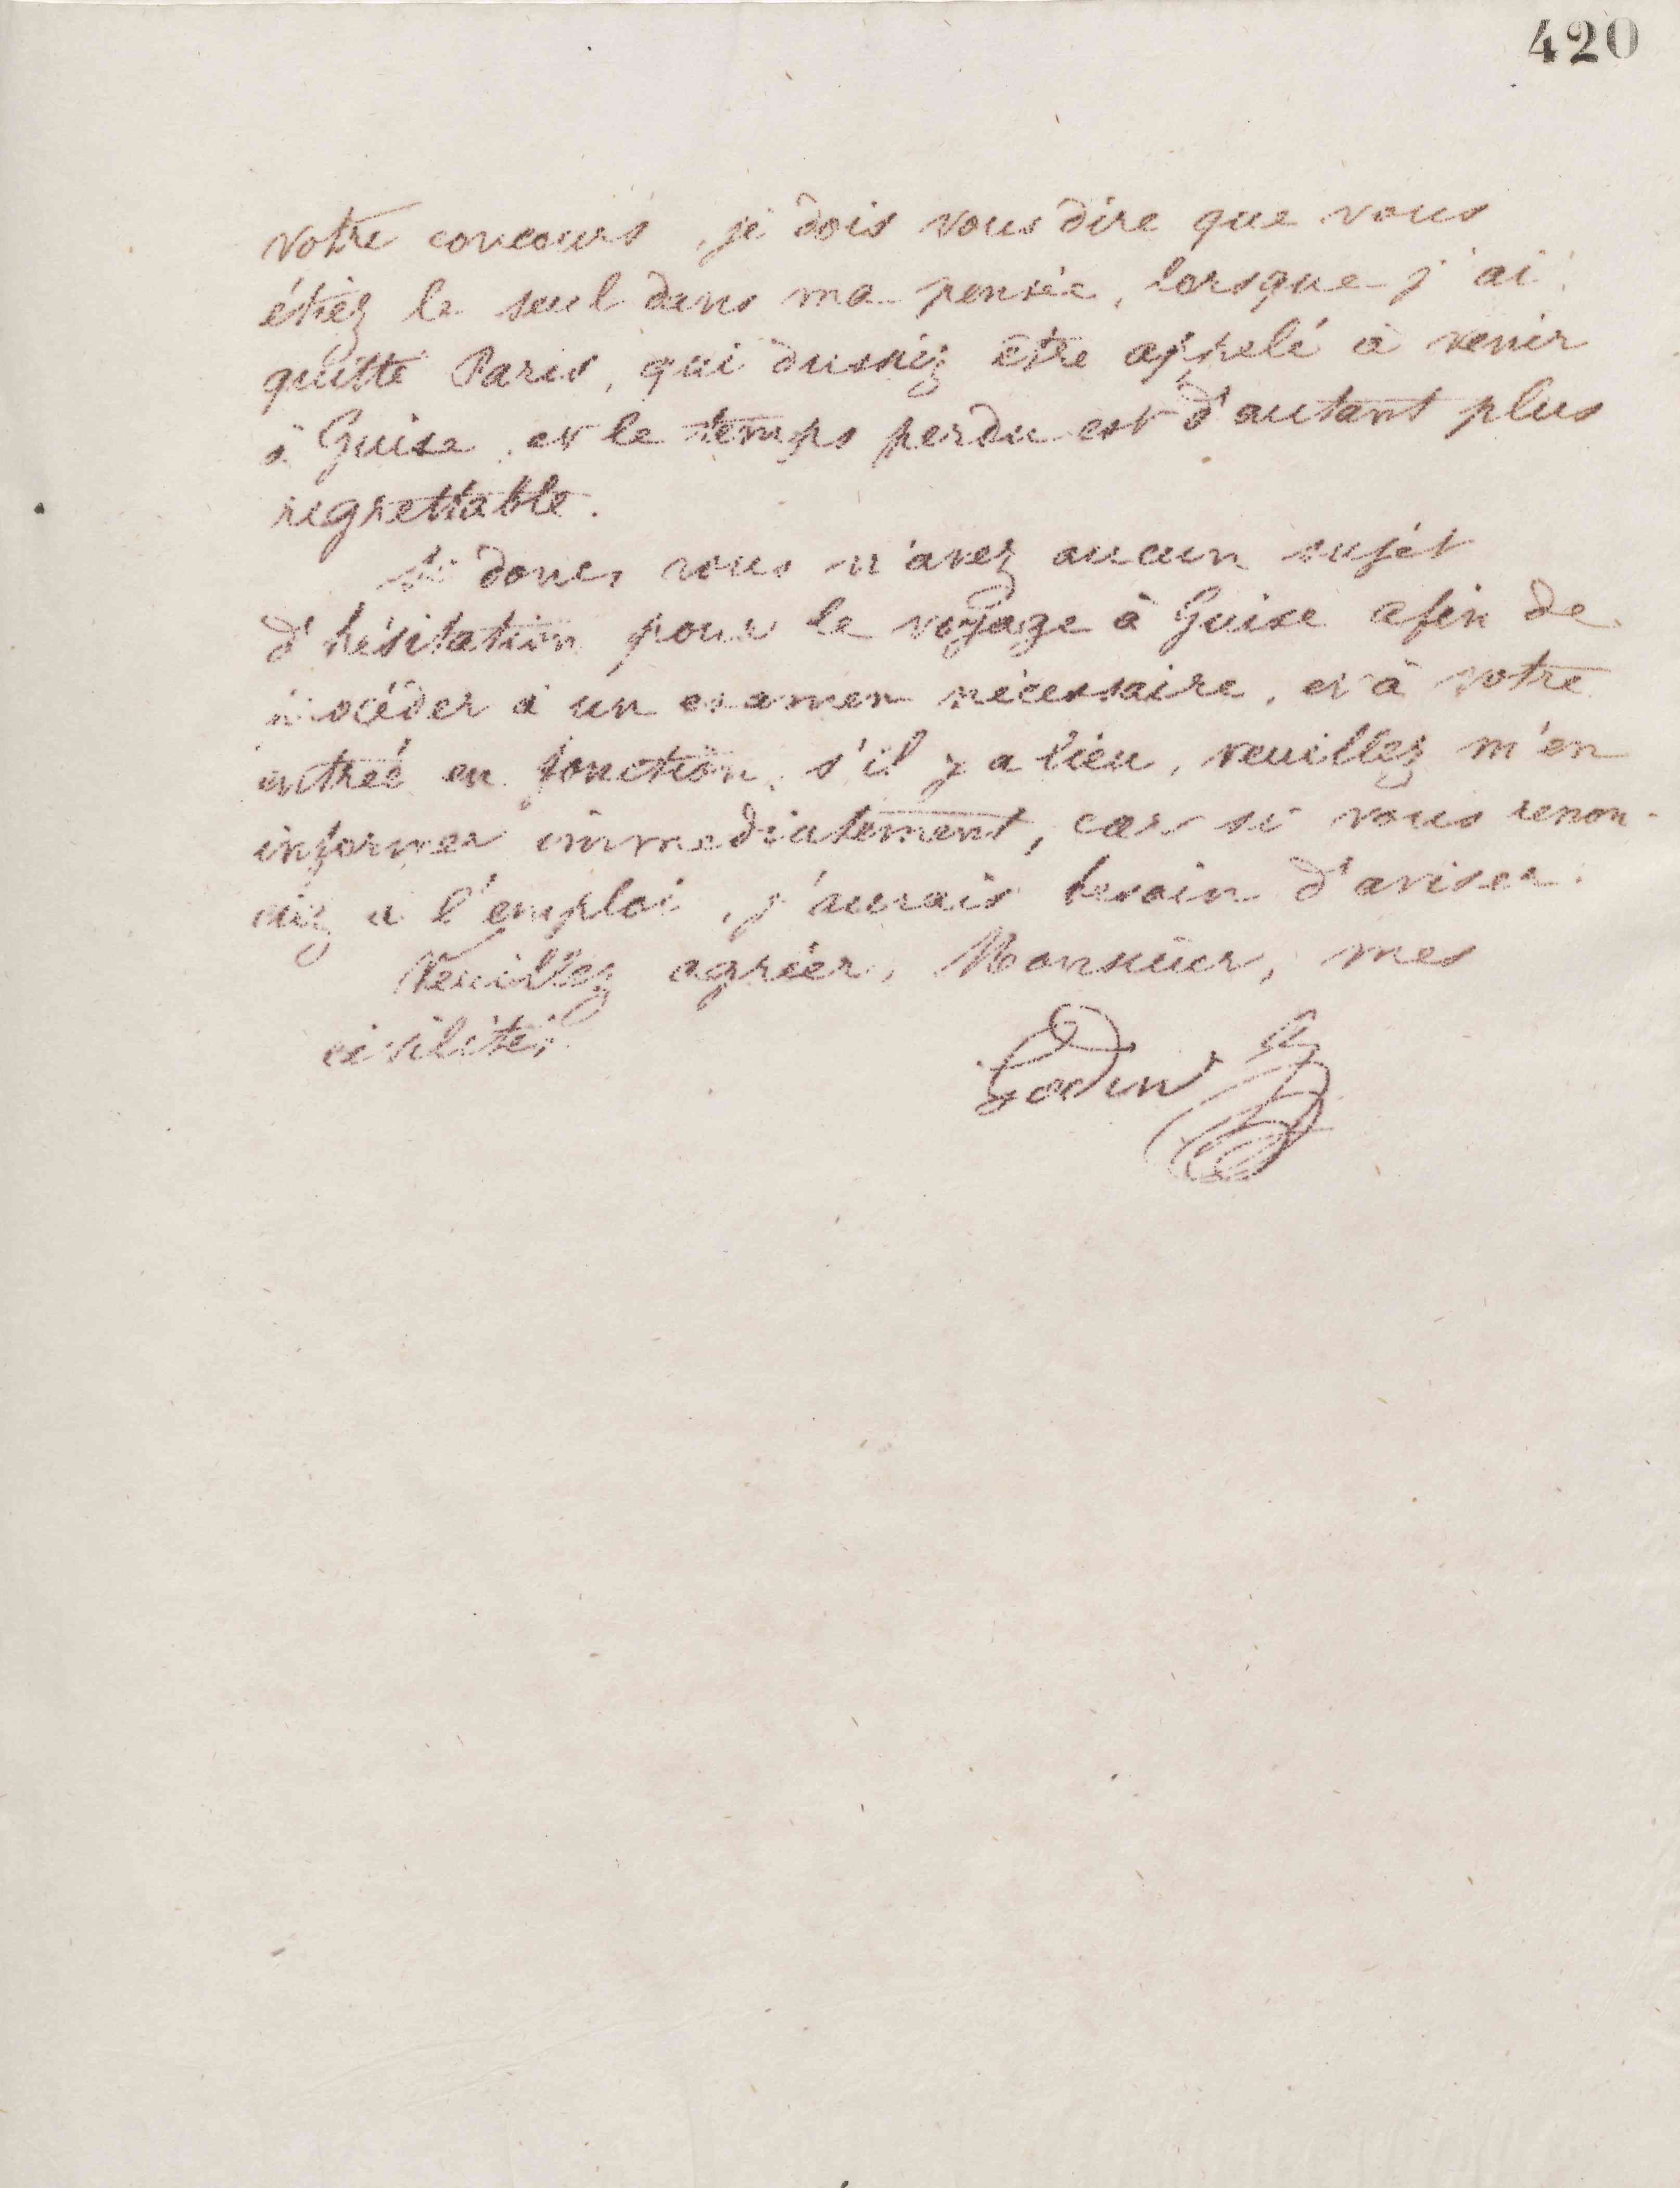 420
votre concours, je dois vous dire que vous
étiez le seul dans ma pensée, lorsque j'ai
quitté Paris, qui dussiez être appelé à venir
à Guise, et le temps perdu est d'autant plus
regrettable.
Si donc, vous n'avez aucun sujet
d'hésitation pour le voyage à Guise afin de
procéder à un examen nécessaire, et à votre
entrée en fonction, s'il y a lieu, veuillez m'en
informer immediatement, car si vous renon-
ciez a l'emploi, j'aurais besoin d'aviser.
Veuillez agréer, Monsieur, mes
civilités.
Godin